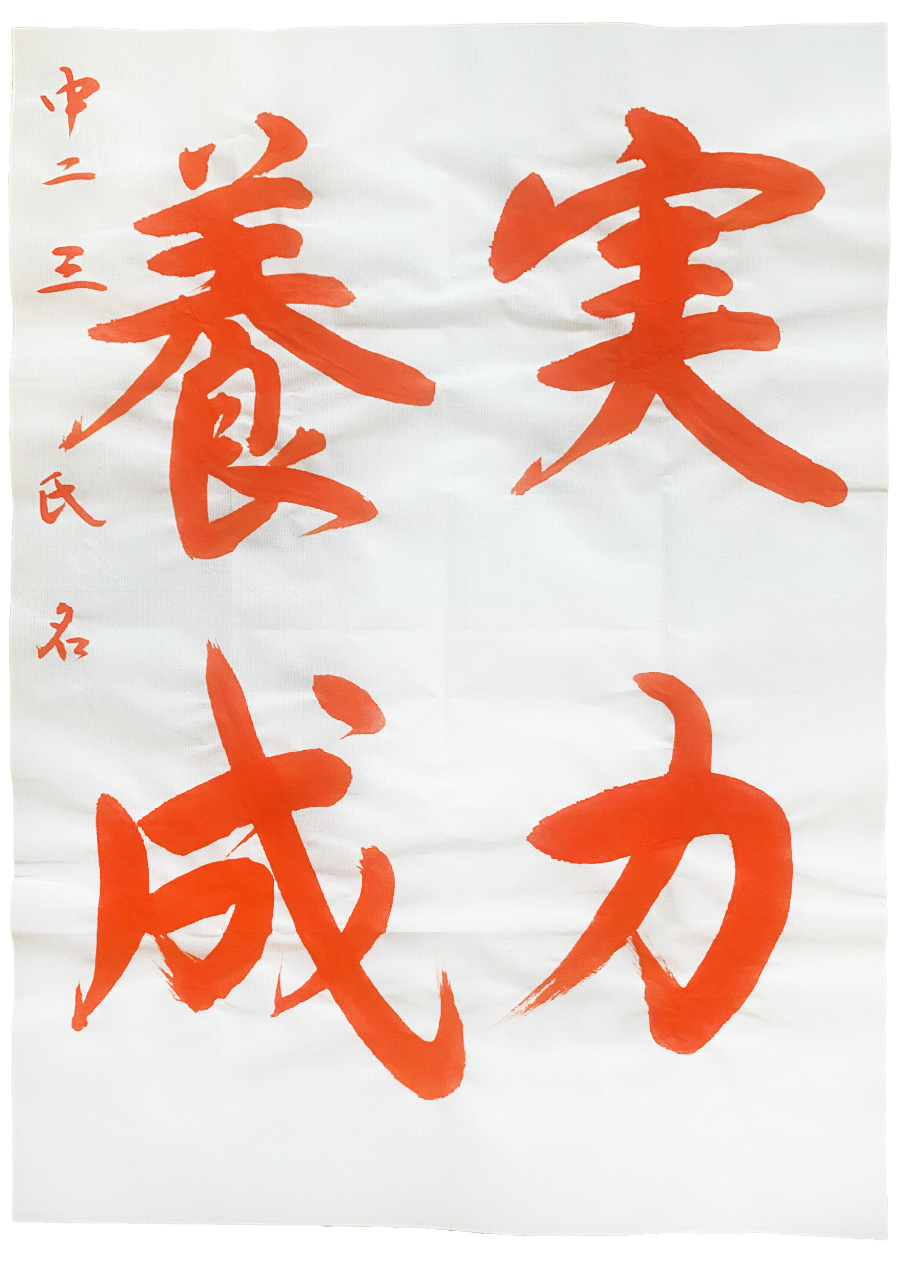 実力
養成
中二 三 氏名